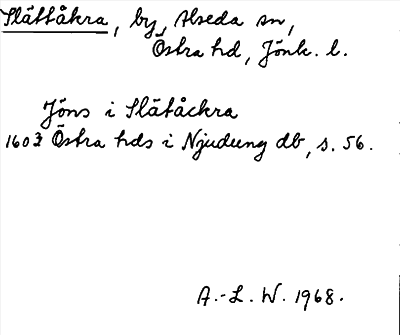 Slättåkra, by, Alseda sn,
Östra hd, Jönk. l.
Jöns i Slätåckra
1603 Östra hds i Njudung db, s. 56.
A.-L. W. 1968.